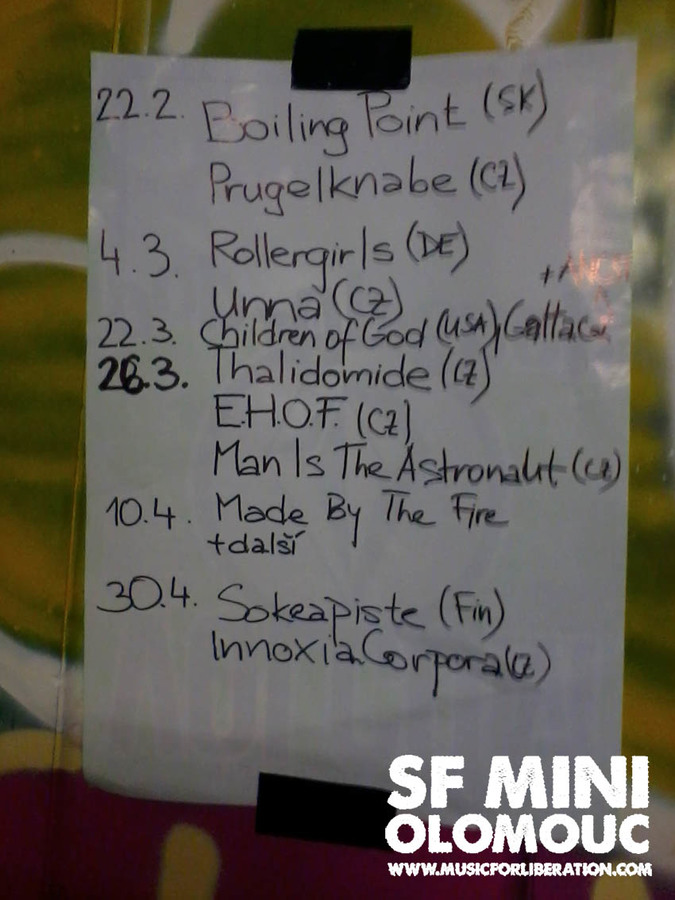 22.2. Boiling Point (SK)
Prugelknabe (CZ)
4.3. Rollergirls (DE)
Unna (CZ)
22.3. Children of God (USA),
26.3. Thalidomide (CZ)
E.H.O.F. (CZ)
Man Is The Astronaut (CZ)
10.4. Made By The Fire
+další
30.4. Sokeapiste (Fin)
Innoxia Corpora (CZ)
SF MINI
OLOMOUC
WWW.MUSICFORLIBERATION.COM